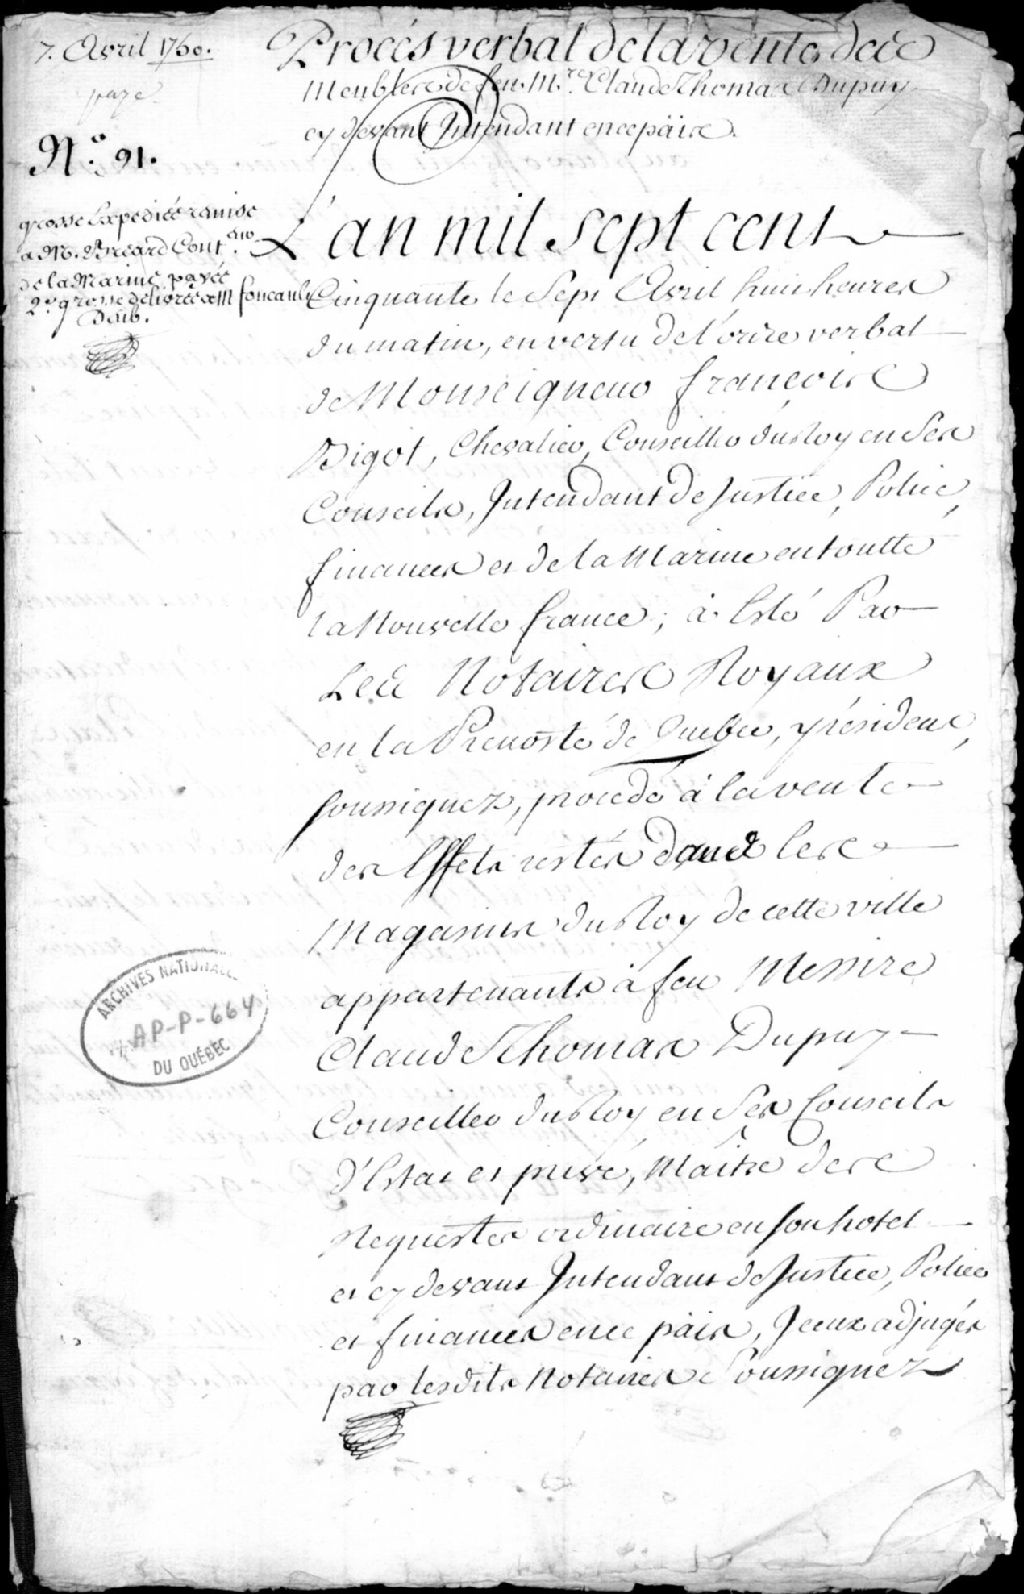 7. Avril 1750.
payé
N.° 91.
Procés verbal de la vente des
Meubles de feu M.re Claude Thomas Dupuy
cy devant Intendant en ce païs.
grosse Expediée remise
a M. Breard Cont.
de la Marine payée
2.e grosse délivrée a M foucault
Doib.
L'an mil sept cent
Cinquante le Sept Avril huit heures
du matin, en vertu de l'ordre verbal
de Monseigneur françois
Bigot, Chevalier, Conseiller du Roy en Ses
Conseils, Intendant de Justice, Police,
finances et de la Marine en toutte
la Nouvelle france; à Esté Par
Les Notaires Royaux
en la Prevosté de Quebec, y résident,
soussignez, procedé à la vente
des Effets restés dans les
Magasins du Roy de cette ville
appartenants à feu Messire
Claude Thomas Dupuy
Conseiller du Roy en Ses Conseils
d'Estat et privé, Maître des
Requestes ordinaire en son hotel
et cy devant Intendant de Justice, Police
et finances en ce païs, Iceux adjugés
par lesdits Notaires Soussignez
ARCHIVES NATIONALES
AP-P-664
DU QUÉBEC